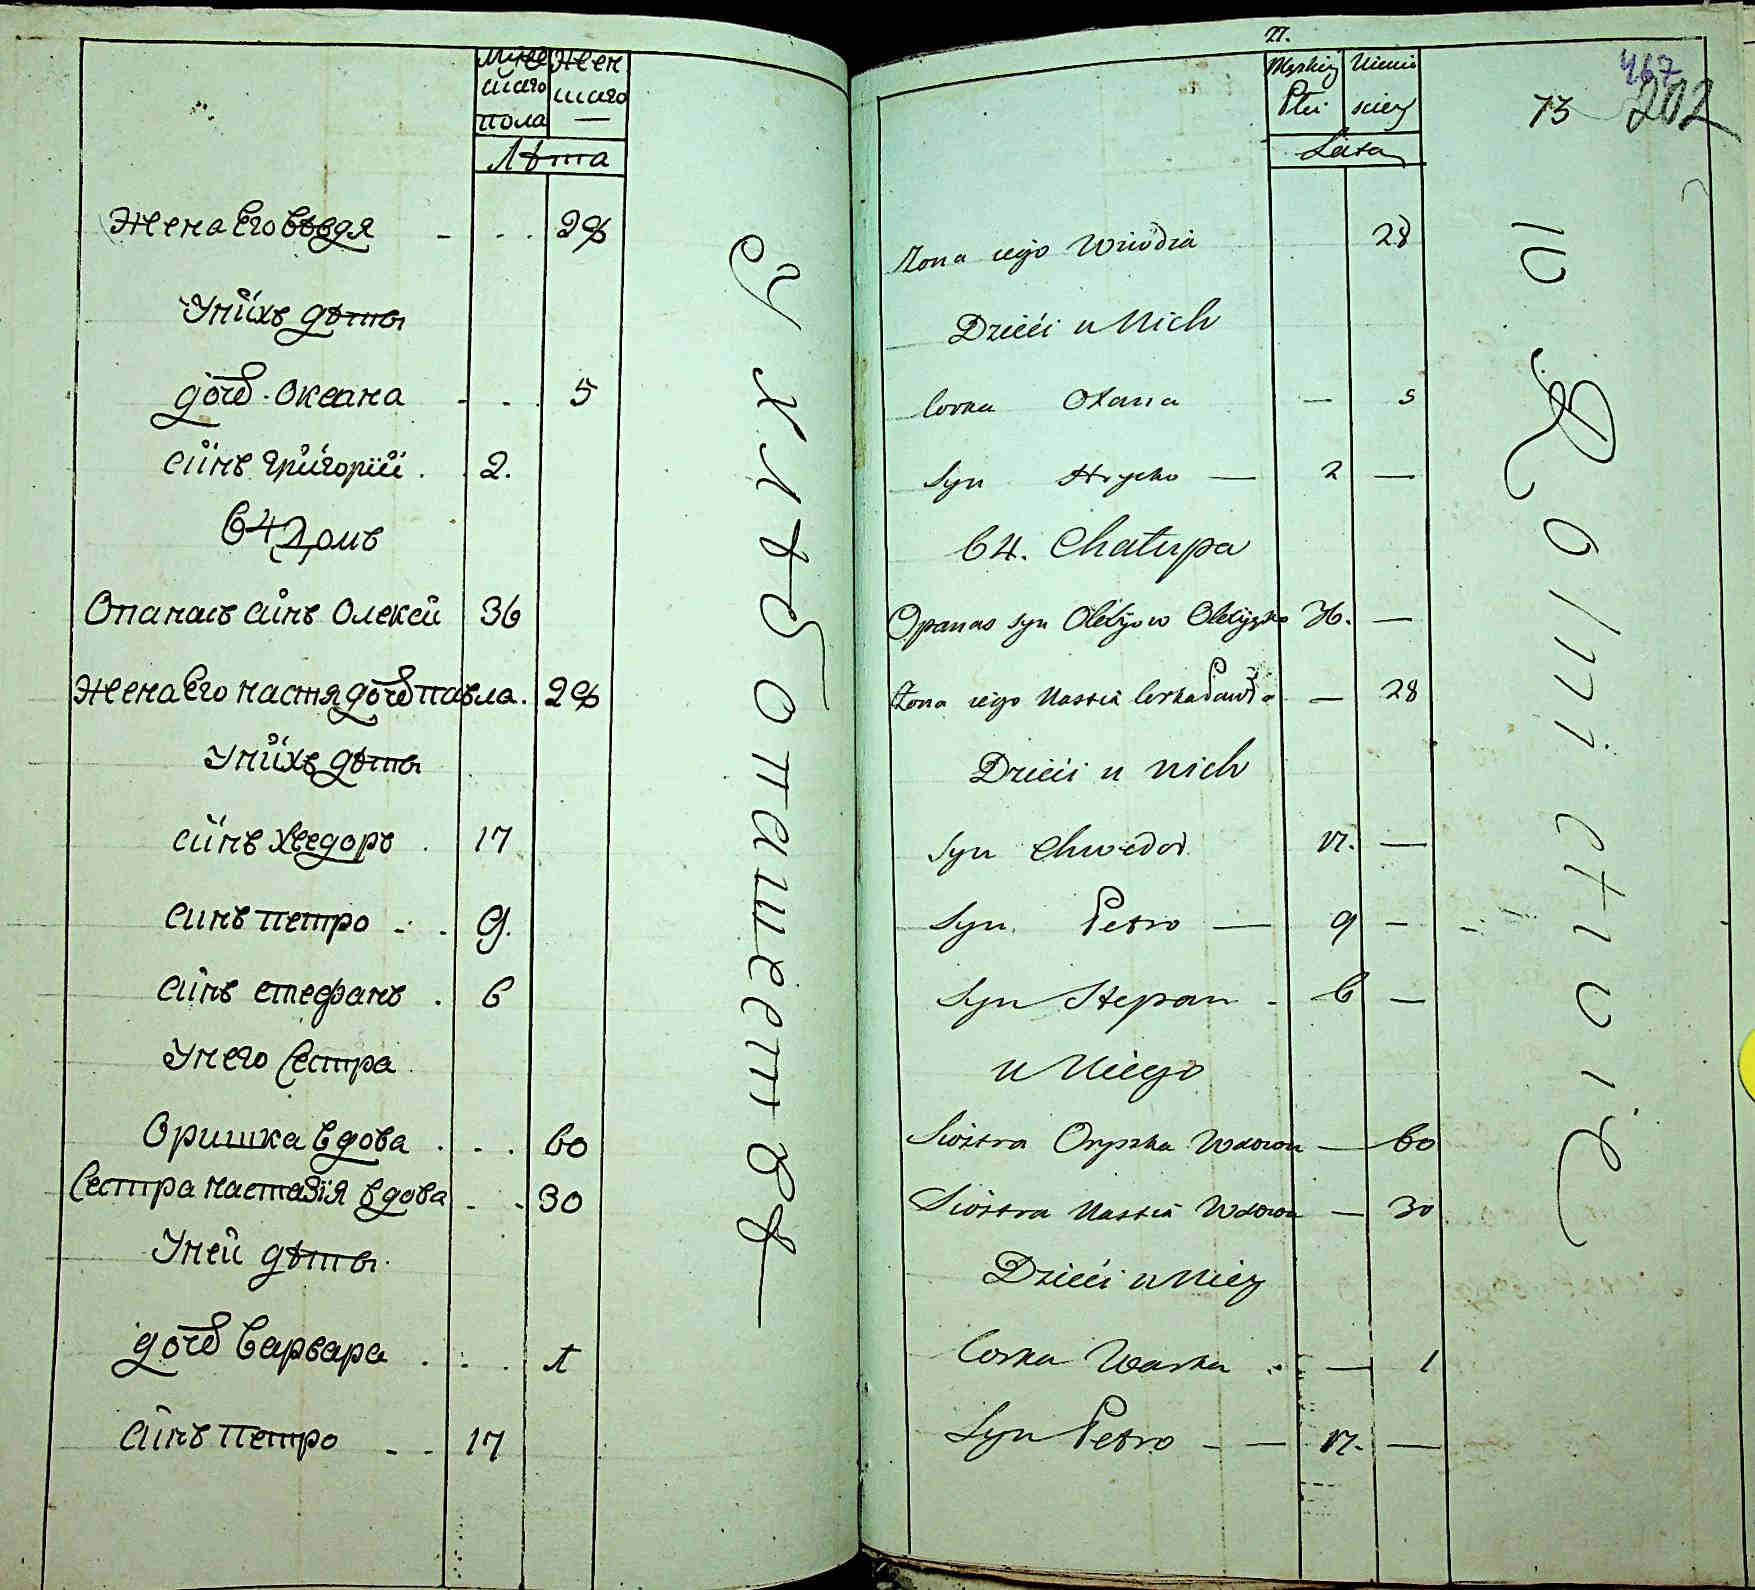 Муже Жен
скаго скаго
пола —
Лѣта
Жена Его Евгдя - . . 28
У нйхъ дѣты
дочъ Оксана - . . 5
сйнъ григорій . . 2.
64 Домъ
Опанасъ сйнъ Олексй 36
Жена Его настя дочъ павла . 28
У нйхъ дѣты
сйнъ хведоръ . 17
синъ петро . . 9.
сйнъ стефанъ . 6
У него Сестра
Оришка вдова . . . 60
Сестра настазія вдова . . 30
У ней дѣты
дочъ варвара . . . 1
сйнъ петро . . 17
у хлѣбопашествѣ
27.
Męzkiey Niewie
Płci sciey
Lata
467
73 202
Zona iego Wiwdia 28
Dzieci u Nich
Corka Oxana — 5
Syn Hrycko — 2 —
64. Chałupa
Opanas syn Olexyow Olexyszyn 36. —
Zona iego Nastia Corka Pawła — 28
Dzieci u nich
Syn Chwedor 17. —
Syn Petro — 9 -
Syn Stepan - 6 —
u Niego
Siostra Oryszka Wdowa — 60
Siostra Nastia Wdowa — 30
Dzieci u Niey
Corka Warka . — 1
Syn Petro - — 17. —
w Rolnictwie